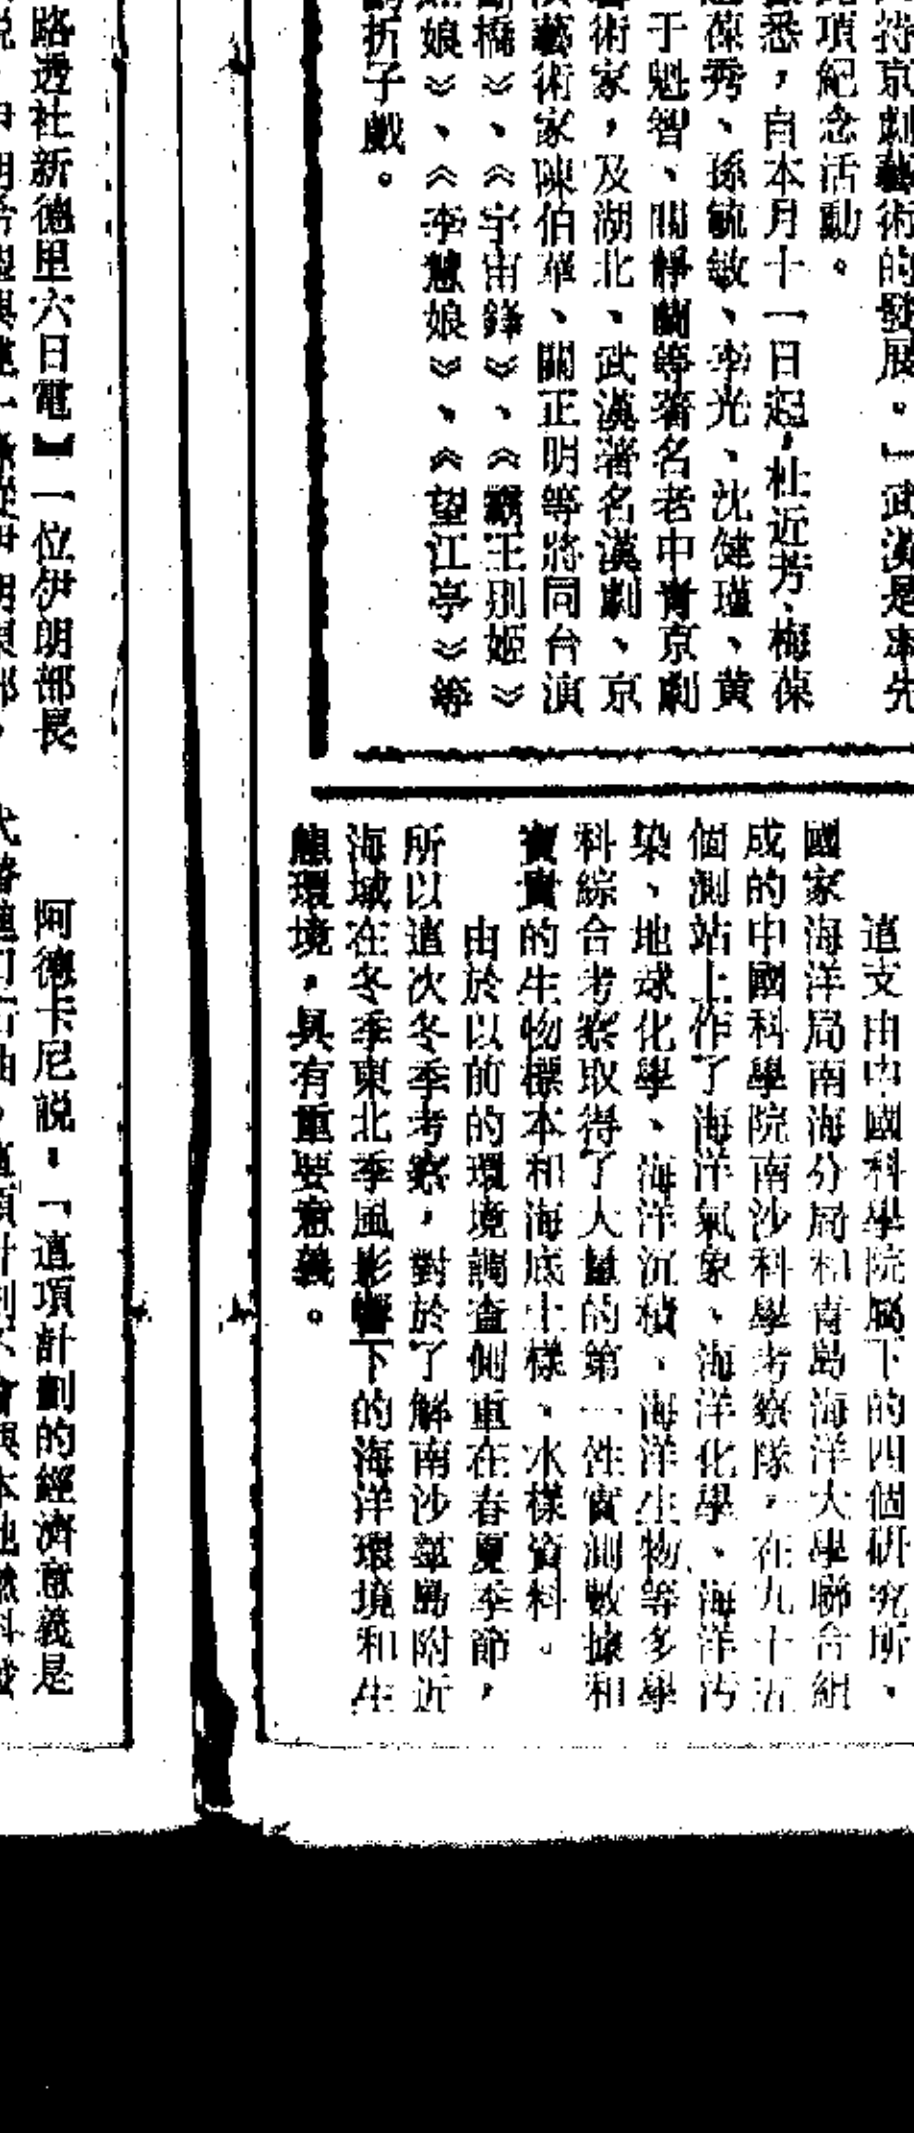 持京劇藝術的發展。」武漢是率先
項紀念活動。
悉，自本月十一日起，杜近芳、梅葆
葆秀、孫毓敏、李光、沈健瑾、黃
于魁智、閻靜蘭等著名老中青京劇
術家，及湖北、武漢著名漢劇、京
藝術家陳伯華、關正明等將同台演
橋》、《宇宙鋒》、《霸王別姬》
娘》、《李慧娘》、《望江亭》等
折子戲。
這支由中國科學院屬下的四個研究所、
國家海洋局南海分局和青島海洋大學聯合組
成的中國科學院南沙科學考察隊，在九十五
個測站上作了海洋氣象、海洋化學、海洋污
染、地球化學、海洋沉積、海洋生物等多學
科綜合考察取得了大量的第一性實測數據和
寶貴的生物標本和海底土樣、水樣資料。
由於以前的環境調查側重在春夏季節，
所以這次冬季考察，對於了解南沙羣島附近
海域在冬季東北季風影響下的海洋環境和生
態環境，具有重要意義。
路透社新德里六日電】一位伊朗部長
阿德卡尼說，「這項計劃的經濟意義是